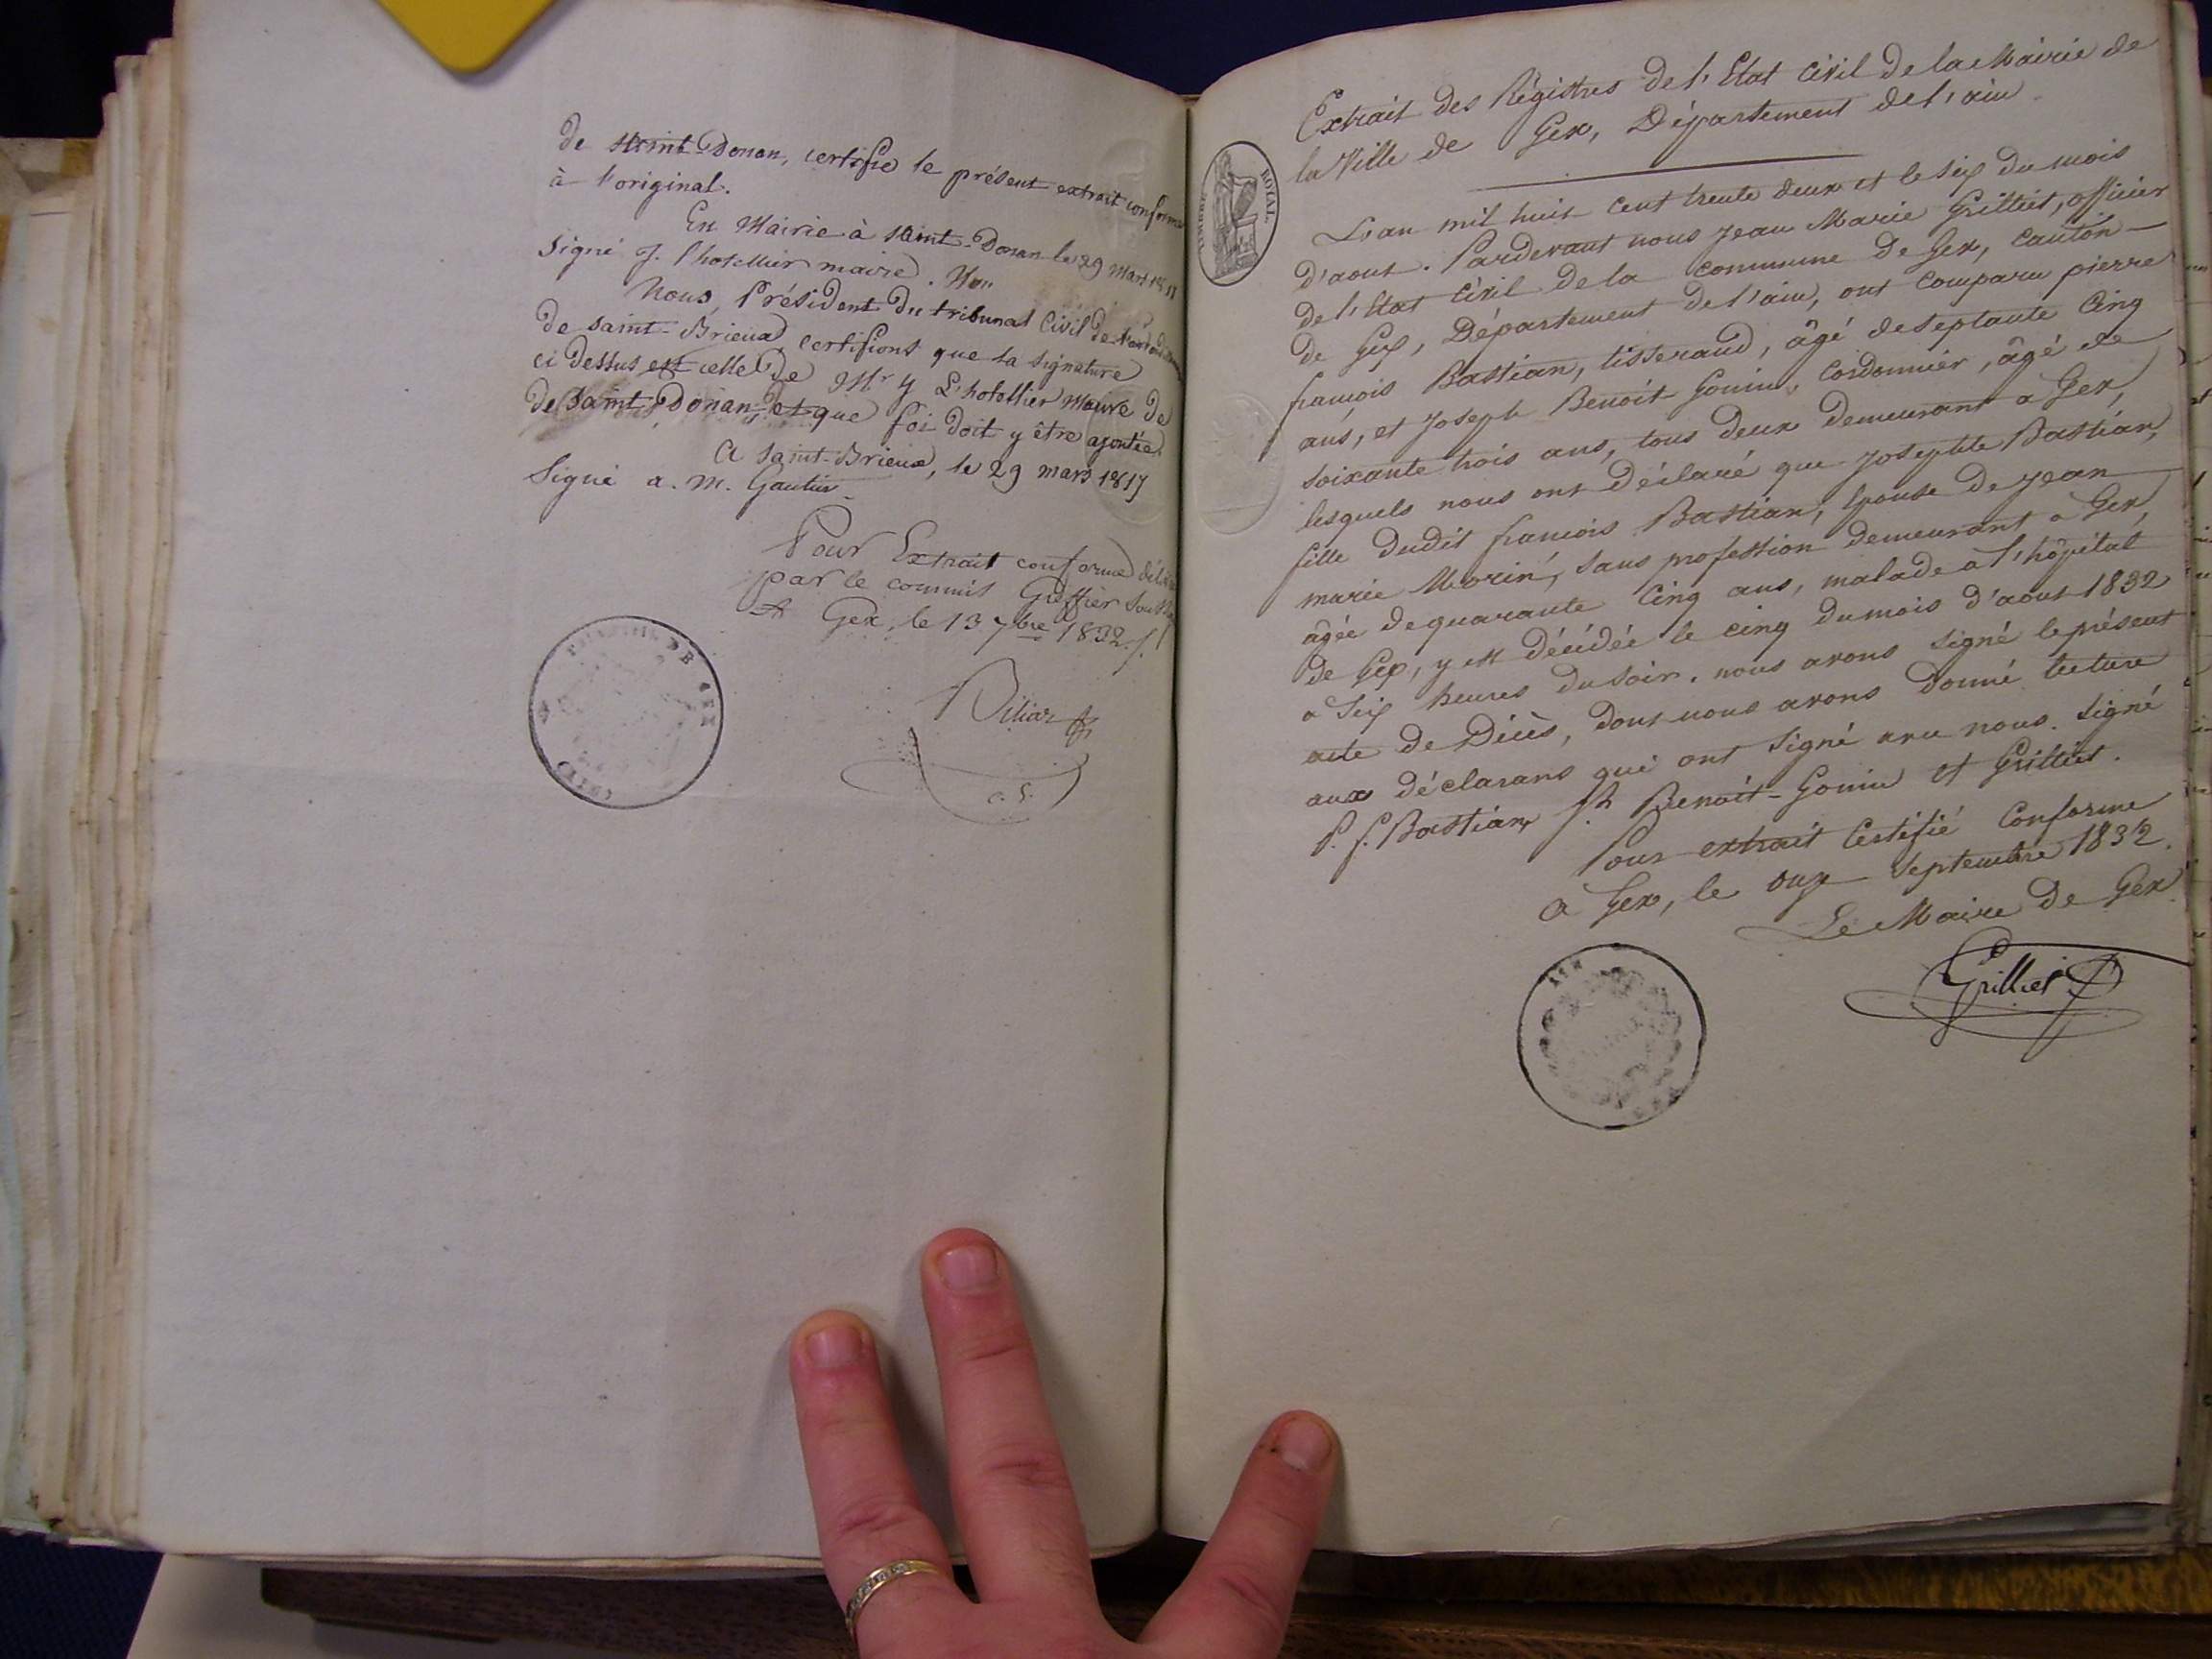 de saint-Donan, certifie le présent extrait conforme
à l'original.
En Mairie à saint-Donan le 29 mars
Signé J. l'hotellier maire.
Nous, Président du tribunal Civil de
de saint-Brieux certifions que la signature
ci dessus est celle de Mr y L'hotellier Maire de
de saint-Donan, et que foi doit y être ajoutée
A saint-Brieux, le 29 mars 1817
Signé a. m. Gautier
Pour Extrait conforme
par le commis Greffier
A Gex, le 13 7bre 1832.
ROYAL.
Extrait des Régistres de l'Etat Civil de la Mairie de
la Ville de Gex, Département de l'ain.
L'an mil huit cent trente deux et le six du mois
d'aout. Pardevant nous jean Marie Grilliet, officier
de l'Etat Civil de la commune de Gex, canton
de Gex, Département de l'ain, ont comparu pierre
françois Bastian, tisserand, âgé de septante cinq
ans, et joseph Benoit-Gonin, cordonnier, âgé de
soixante trois ans, tous deux demeurant a Gex,
lesquels nous ont déclaré que josephte Bastian,
fille dudit françois Bastian, épouse de jean
marie Morin, sans profession demeurant a Gex,
âgée de quarante cinq ans, malade a l'hôpital
de Gex, y est décédée le cinq du mois d'aout 1832
a six heures du soir. nous avons signé le présent
acte de Décès, dont nous avons donné lecture
aux déclarans qui ont signé avec nous. signé
P. f. Bastian, Jh Benoit-Gonin et Grilliet.
Pour extrait Certifié Conforme
a Gex, le onze Septembre 1832.
Le Maire de Gex
Grilliet